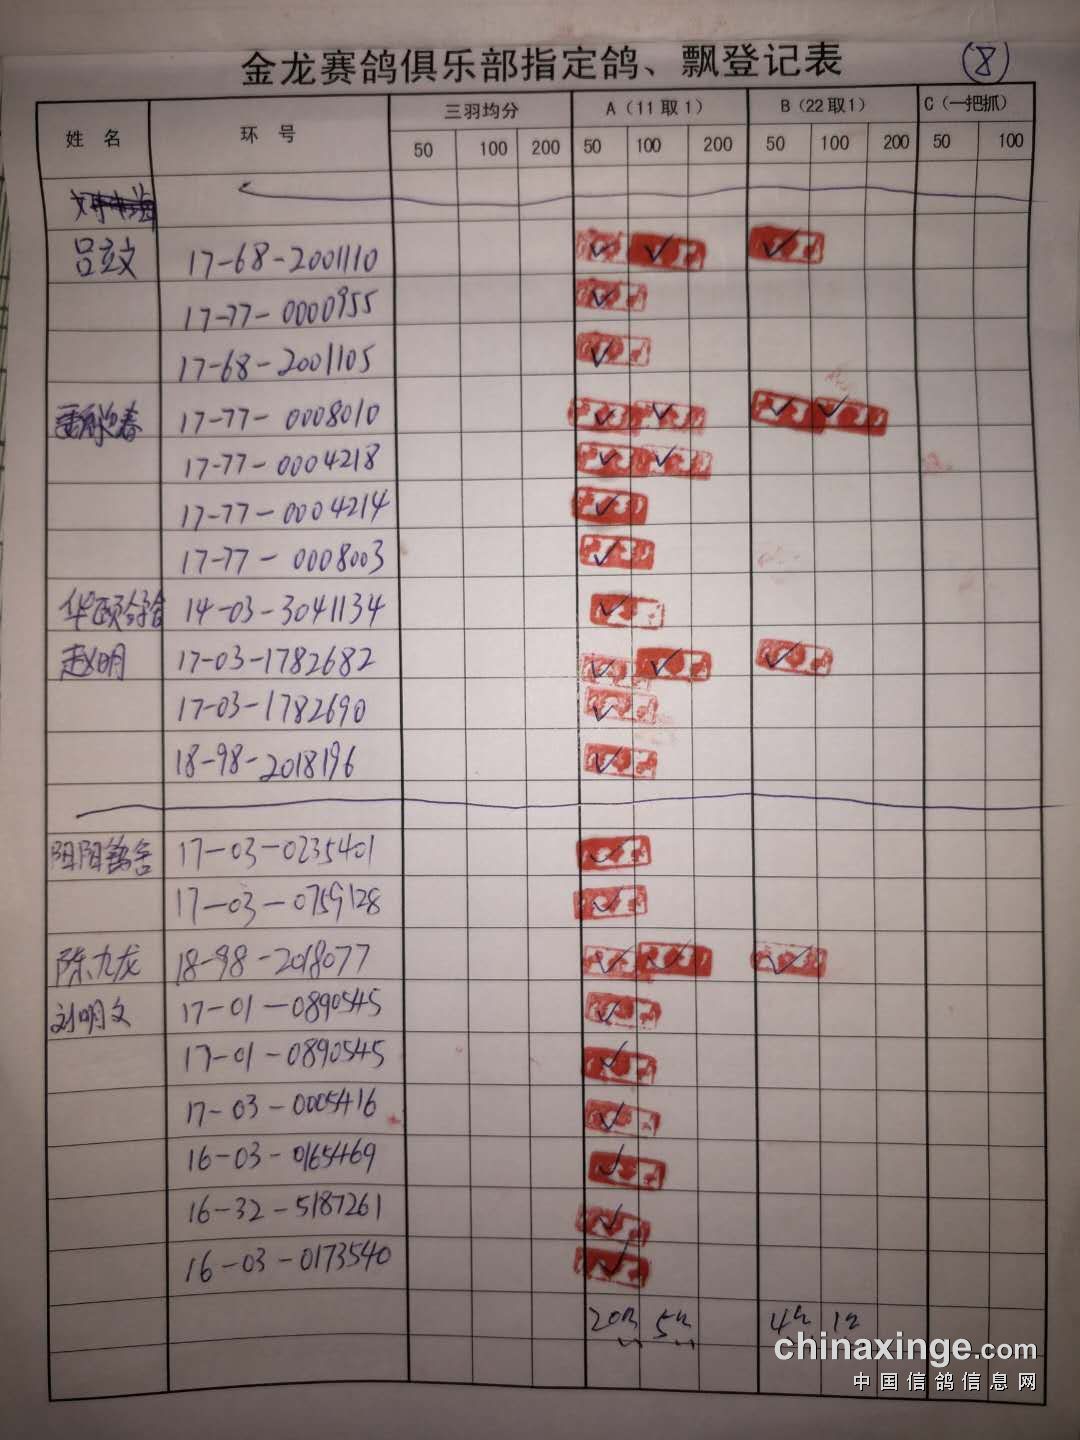 金龙赛鸽俱乐部指定鸽、飘登记表 (8)
姓 名 环 号 三羽均分 A(11取1) B(22取1) C(一把抓)
50 100 200 50 100 200 50 100 200 50 100
吕立文 17-68-2001110
17-77-0000955
17-68-2001105
17-77-0008010
17-77-0004218
17-77-0004214
17-77-0008003
华颐鸽舍 14-03-3041134
赵明 17-03-1782682
17-03-1782690
18-98-2018196
阳阳鸽舍 17-03-0235401
17-03-0759128
陈九龙 18-98-2018077
刘明文 17-01-0890545
17-01-0890545
17-03-0005416
16-03-0165469
16-32-5187261
16-03-0173540
20 5 4 1
chinaxinge.com
中国信鸽信息网